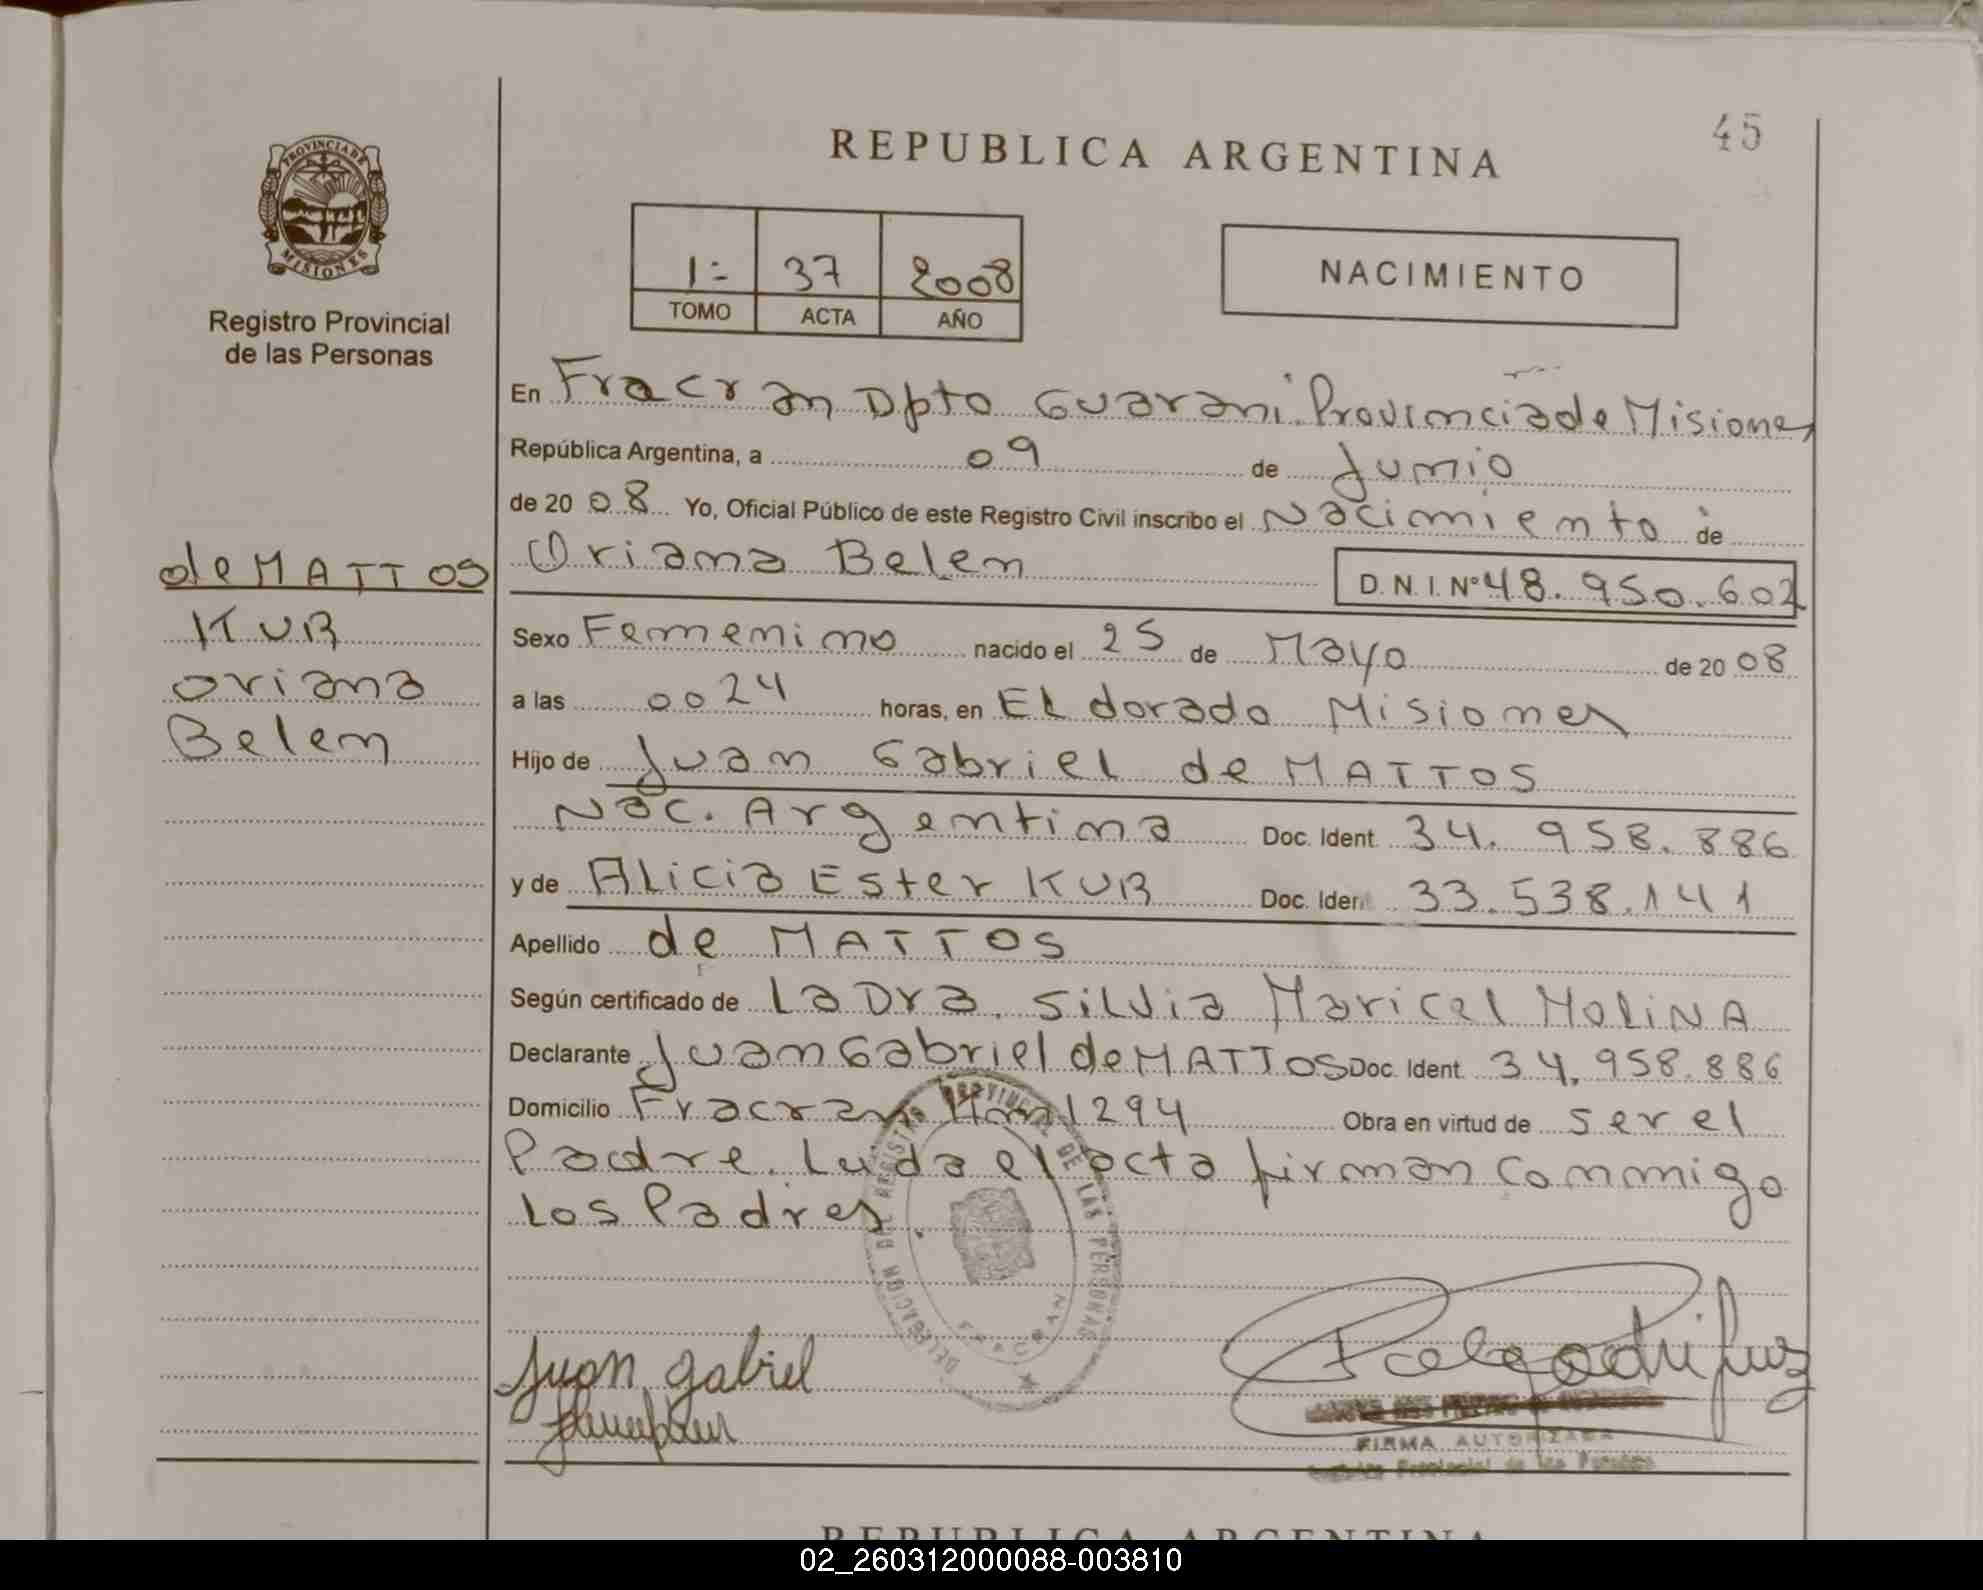 45
REPUBLICA ARGENTINA
PROVINCIA DE
MISIONES
Registro Provincial
de las Personas
1= 37 2008
TOMO ACTA AÑO
NACIMIENTO
En Fracran Dpto Guarani Provincia de Misiones
República Argentina, a 09 de Junio
de 20 08 Yo, Oficial Público de este Registro Civil inscribo el Nacimiento de
Oriana Belen D.N.I. Nº 48.950.602
de MATTOS
KUB
Oriana
Belen
Sexo Femenino nacido el 25 de Mayo de 20 08
a las 0024 horas, en ELdorado Misiones
Hijo de Juan Gabriel de MATTOS
Nac. Argentina Doc. Ident. 34.958.886
y de Alicia Ester KUB Doc. Ident. 33.538.141
Apellido de MATTOS
Según certificado de La Dra. Silvia Maricel MOLINA
Declarante Juan Gabriel de MATTOS Doc. Ident. 34.958.886
Domicilio Fracran Km 1294 Obra en virtud de ser el
Padre. Leída el acta firman conmigo
los Padres.
DELEGACION DEL REGISTRO PROVINCIAL DE LAS PERSONAS
FRACRAN
Juan gabriel
FIRMA AUTORIZADA
Registro Provincial de las Personas
REPUBLICA ARGENTINA
02_260312000088-003810